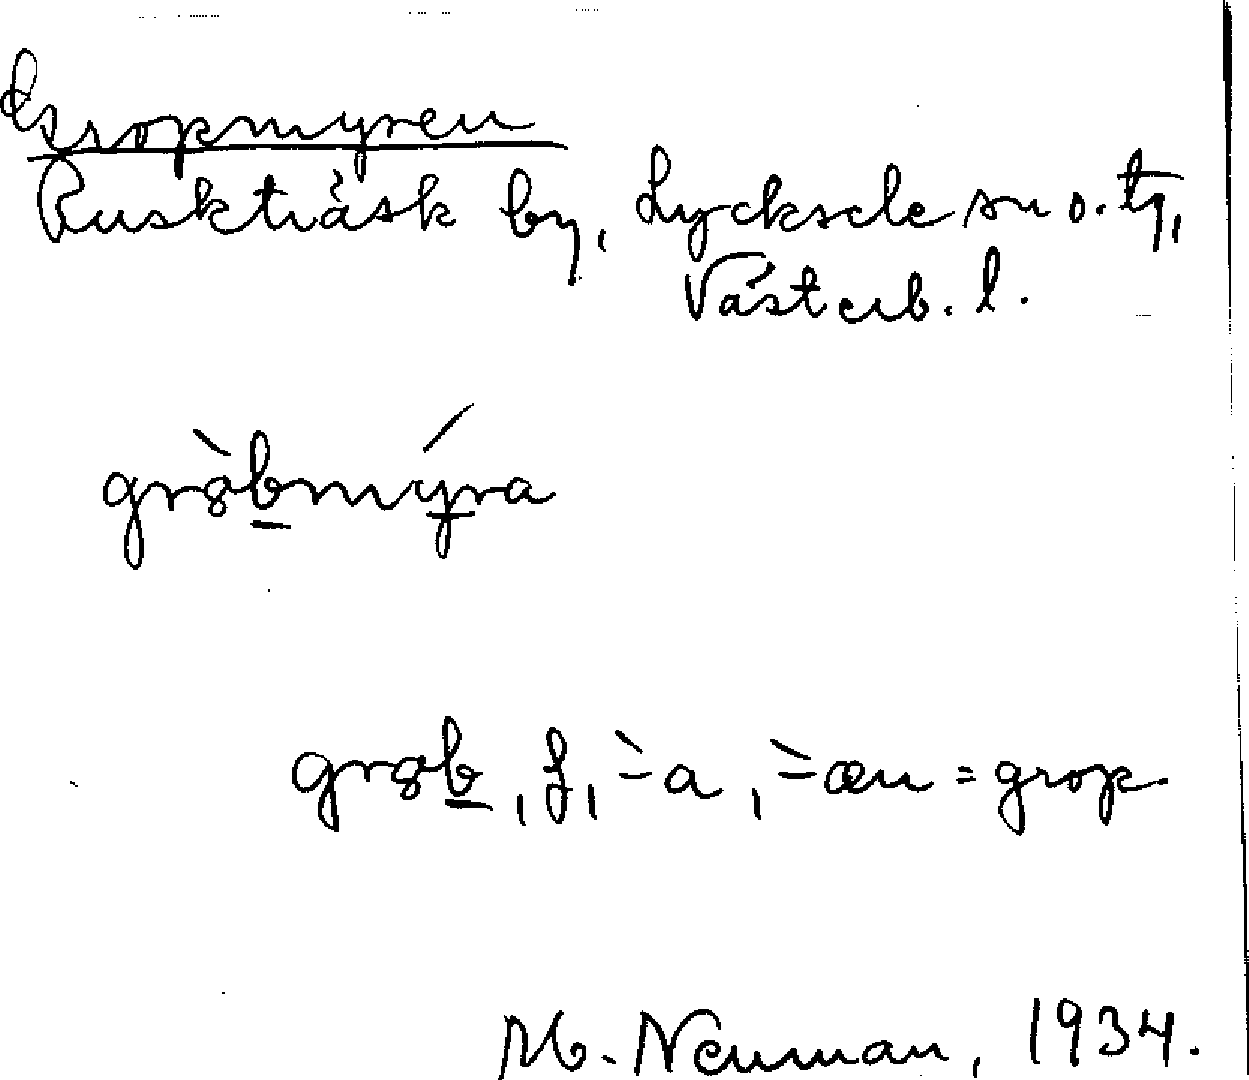 Gropmyren
Ruskträsk by, Lycksele sn o. tg,
Västerb. l.
grȯ̀bmýra
grȯb, f, -̀a, -̀æn = grop
M. Neuman, 1934.